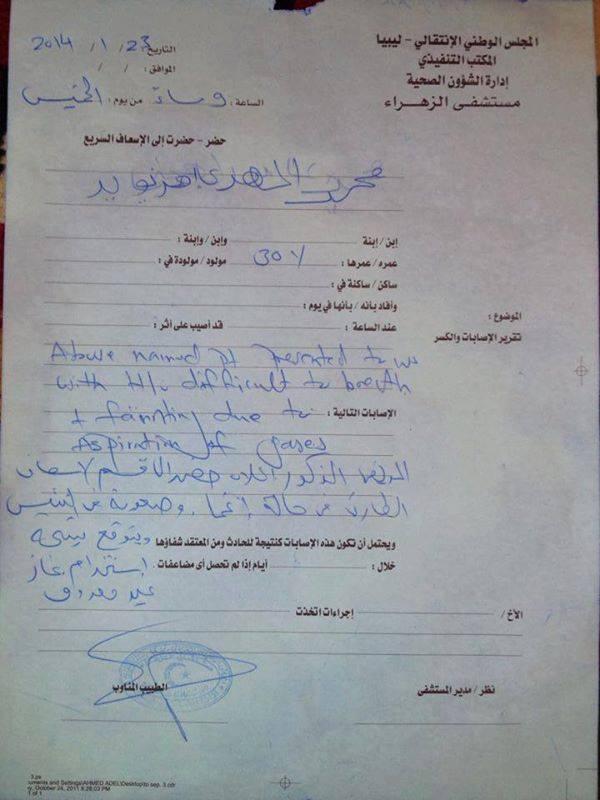 المجلس الوطني الإنتقالي - ليبيا
المكتب التنفيذي
إدارة الشؤون الصحية
مستشفى الزهراء
التاريخ : 23 / 1 / 2014
الموافق : / /
الساعة : 9 مساءً من يوم : الخميس
حضر - حضرت إلى الإسعاف السريع
إبن / إبنة وابن / وإبنة :
عمره / عمرها : 30 y مولود / مولودة في :
ساكن / ساكنة في :
وأفاد بأنه / بأنها في يوم :
الموضوع :
عند الساعة : قد أصيب على أثر :
تقرير الإصابات والكسر
Above named pt presented to us
with H/o difficult to breath
الإصابات التالية :
+ fainting due to
Aspiration of gases
المريض المذكور أعلاه حضر الى قسم الاسعاف
الطارئ في حالة إغماء وصعوبة في التنفس
ويحتمل أن تكون هذه الإصابات كنتيجة للحادث ومن المعتقد شفاؤها
ويتوقع
خلال : أيام إذا لم تحصل أى مضاعفات
إستخدام غاز
غير معروف
الأخ / إجراءات اتخذت
نظر / مدير المستشفى
الطبيب المناوب
3.ps
uments and Settings\AHMED ADEL\Desktop\to sep. 3.cdr
y, October 24, 2011 8:28:03 PM
1 of 1